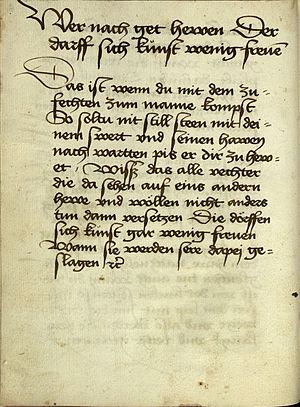 Wer nach get hewen Der
darff sich kunst wenig frewen
Das ist wenn du mit dem zu-
fechten zum manne kompst
So soltu nit still steen mit dei-
nem swert vnd seinen hawen
nach wartten pis er dir zu hew-
et / Wisß das alle vechter
die da sehen auf eins andern
hewe vnd wöllen nicht anders
tun dann versetzen Die dörffen
sich kunst gar wenig frewen
Wann sie werden sere dapej ge-
slagen